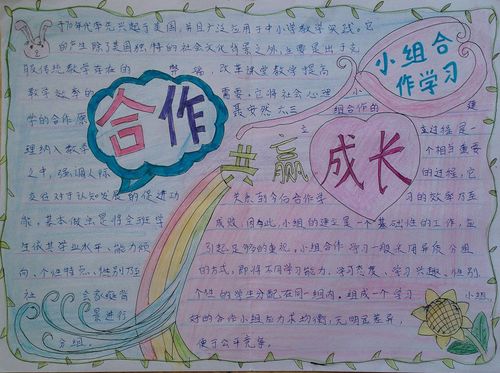 于70年代率先兴起于美国,并且广泛应用于中小学教学实践。它
的产生除了美国独特的社会文化背景之外,主要是出于克
服传统教学存在的 弊端,改革课堂教学提高
教学效率的 需要。它将社会心理
学的合作原 聂安然 大三
理纳入教学
之中,强调人际
交往对于认知发展的促进功
能。基本做法是将全班学
生依其学业水平、能力倾
向、个性特征、性别乃至
社 会家庭背
景进行
分组。
合作
共赢
成长
小组合
作学习
小
组合作的 建
立 过程是一
个相当重要
的过程,它
关系到今后合作学 习的效率乃至
成败,因此,小组的建立是一个基础性的工作,应
引起足够的重视。小组合作学习一般采用异质分组
的方式,即将不同学习能力、学习态度、学习兴趣、性别、
个性的学生分配在同一组内,组成一个学习 小组
好的合作小组应力求均衡,无明显差异,
便于公平竞争。